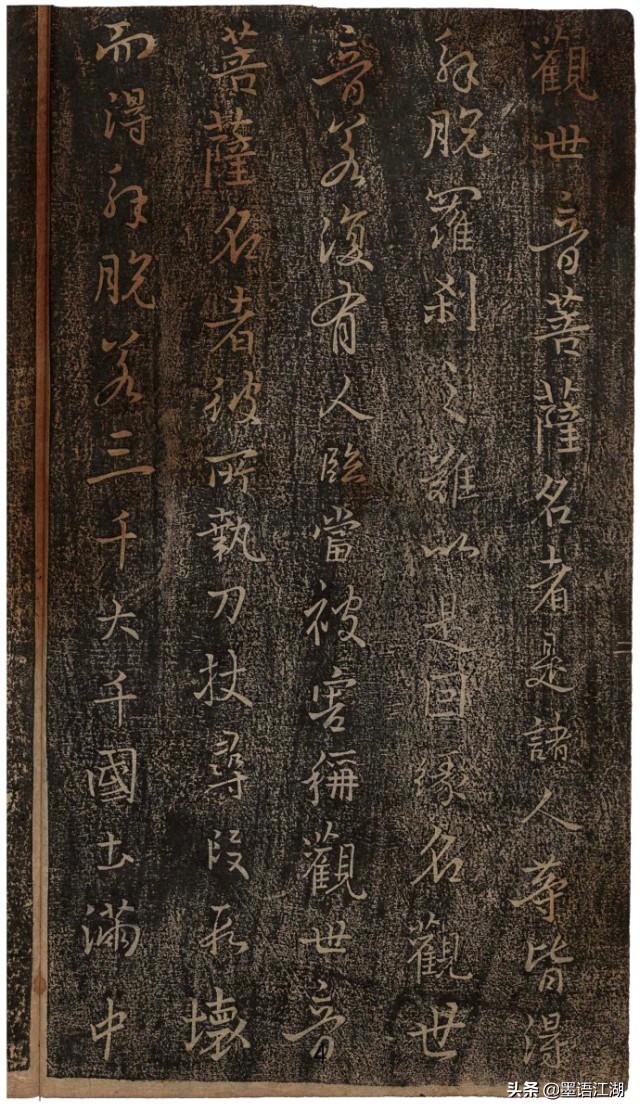 觀世音菩薩名者是諸人等皆得
解脫羅刹之難以是因緣名觀世
音若復有人臨當被害稱觀世音
菩薩名者彼所執刀杖尋段段壞
而得解脫若三千大千國土滿中
头条 @墨语江湖